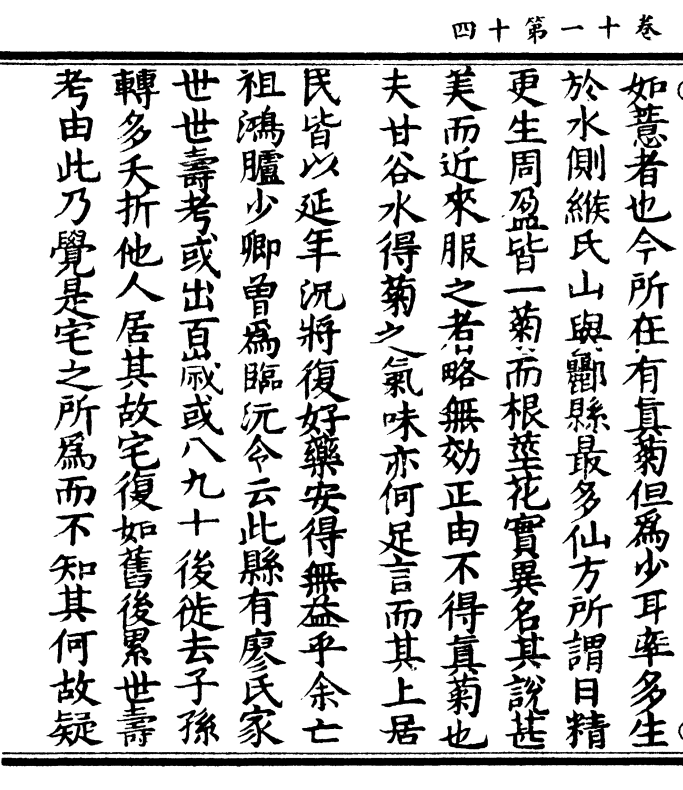 卷十一第十四
如薏者也今所在有真菊但為少耳率多生
於水側緱氏山與酈縣最多仙方所謂日精
更生周盈皆一菊而根莖花實異名其說甚
美而近來服之者略無効正由不得真菊也
夫甘谷水得菊之氣味亦何足言而其上居
民皆以延年況將復好藥安得無益乎余亡
祖鴻臚少卿曾為臨沅令云此縣有廖氏家
世世壽考或出百歲或八九十後徙去子孫
轉多夭折他人居其故宅復如舊後累世壽
考由此乃覺是宅之所為而不知其何故疑